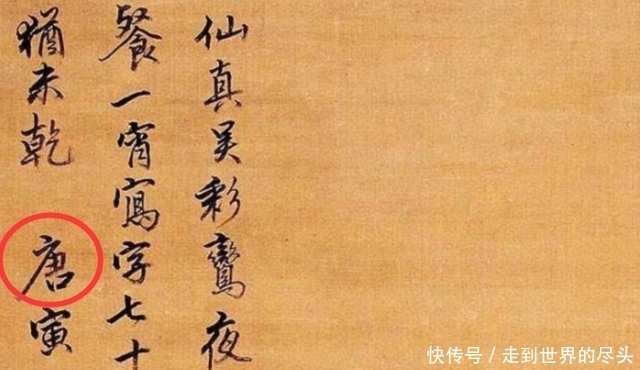 仙真吴彩鸾夜
餐一宵寫字七十
猶未乾 唐寅
快传号/走到世界的尽头